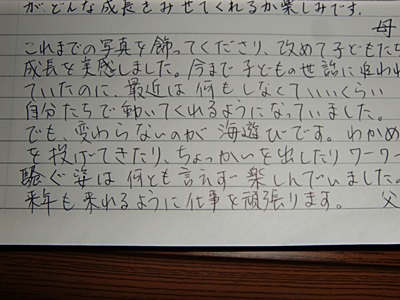 が、どんな成長をみせてくれるか楽しみです。
母
これまでの写真を飾ってくださり、改めて子どもたち
成長を実感しました。今まで子どもの世話に追われ
ていたのに、最近は何もしなくていいくらい
自分たちで動いてくれるようになっていました。
でも、変わらないのが海遊びです。わかめ
を投げてきたり、ちょっかいを出したりワーワー
騒ぐ姿は何とも言えず楽しんでいました。
来年も来れるように仕事を頑張ります。 父